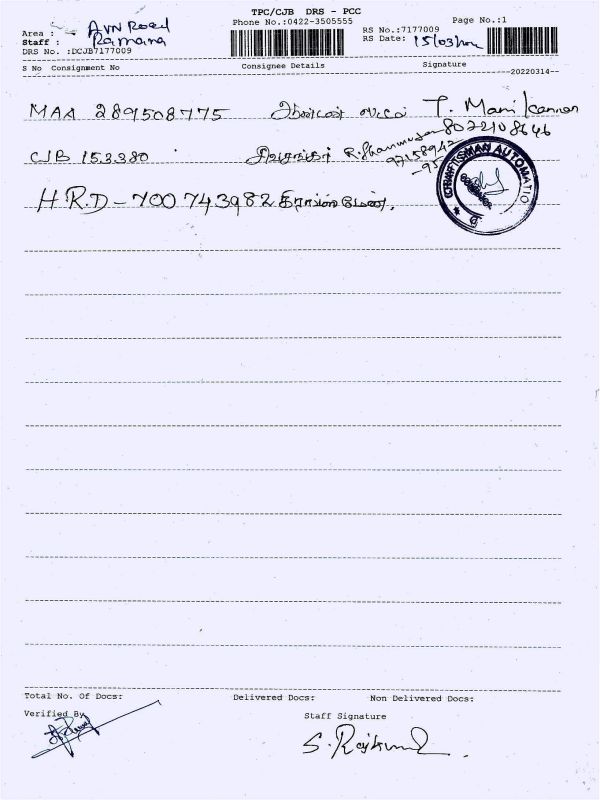 TPC/CJB DRS - PCC
Phone No.:0422-3505555
Page No.:1
Area : Avn Road
Staff : Ramana
RS No.:7177009
DRS No. :DCJB7177009
RS Date: 15/03/
S No Consignment No Consignee Details Signature
20220314
MAA 289508775 T. Manikannan
8022108646
CJB 153380 R. Shanmugan
H R.D - 700743982
CRAFTSMAN AUTOMATIO
Total No. Of Docs: Delivered Docs: Non Delivered Docs:
Verified By
Staff Signature
S. Rajkumar